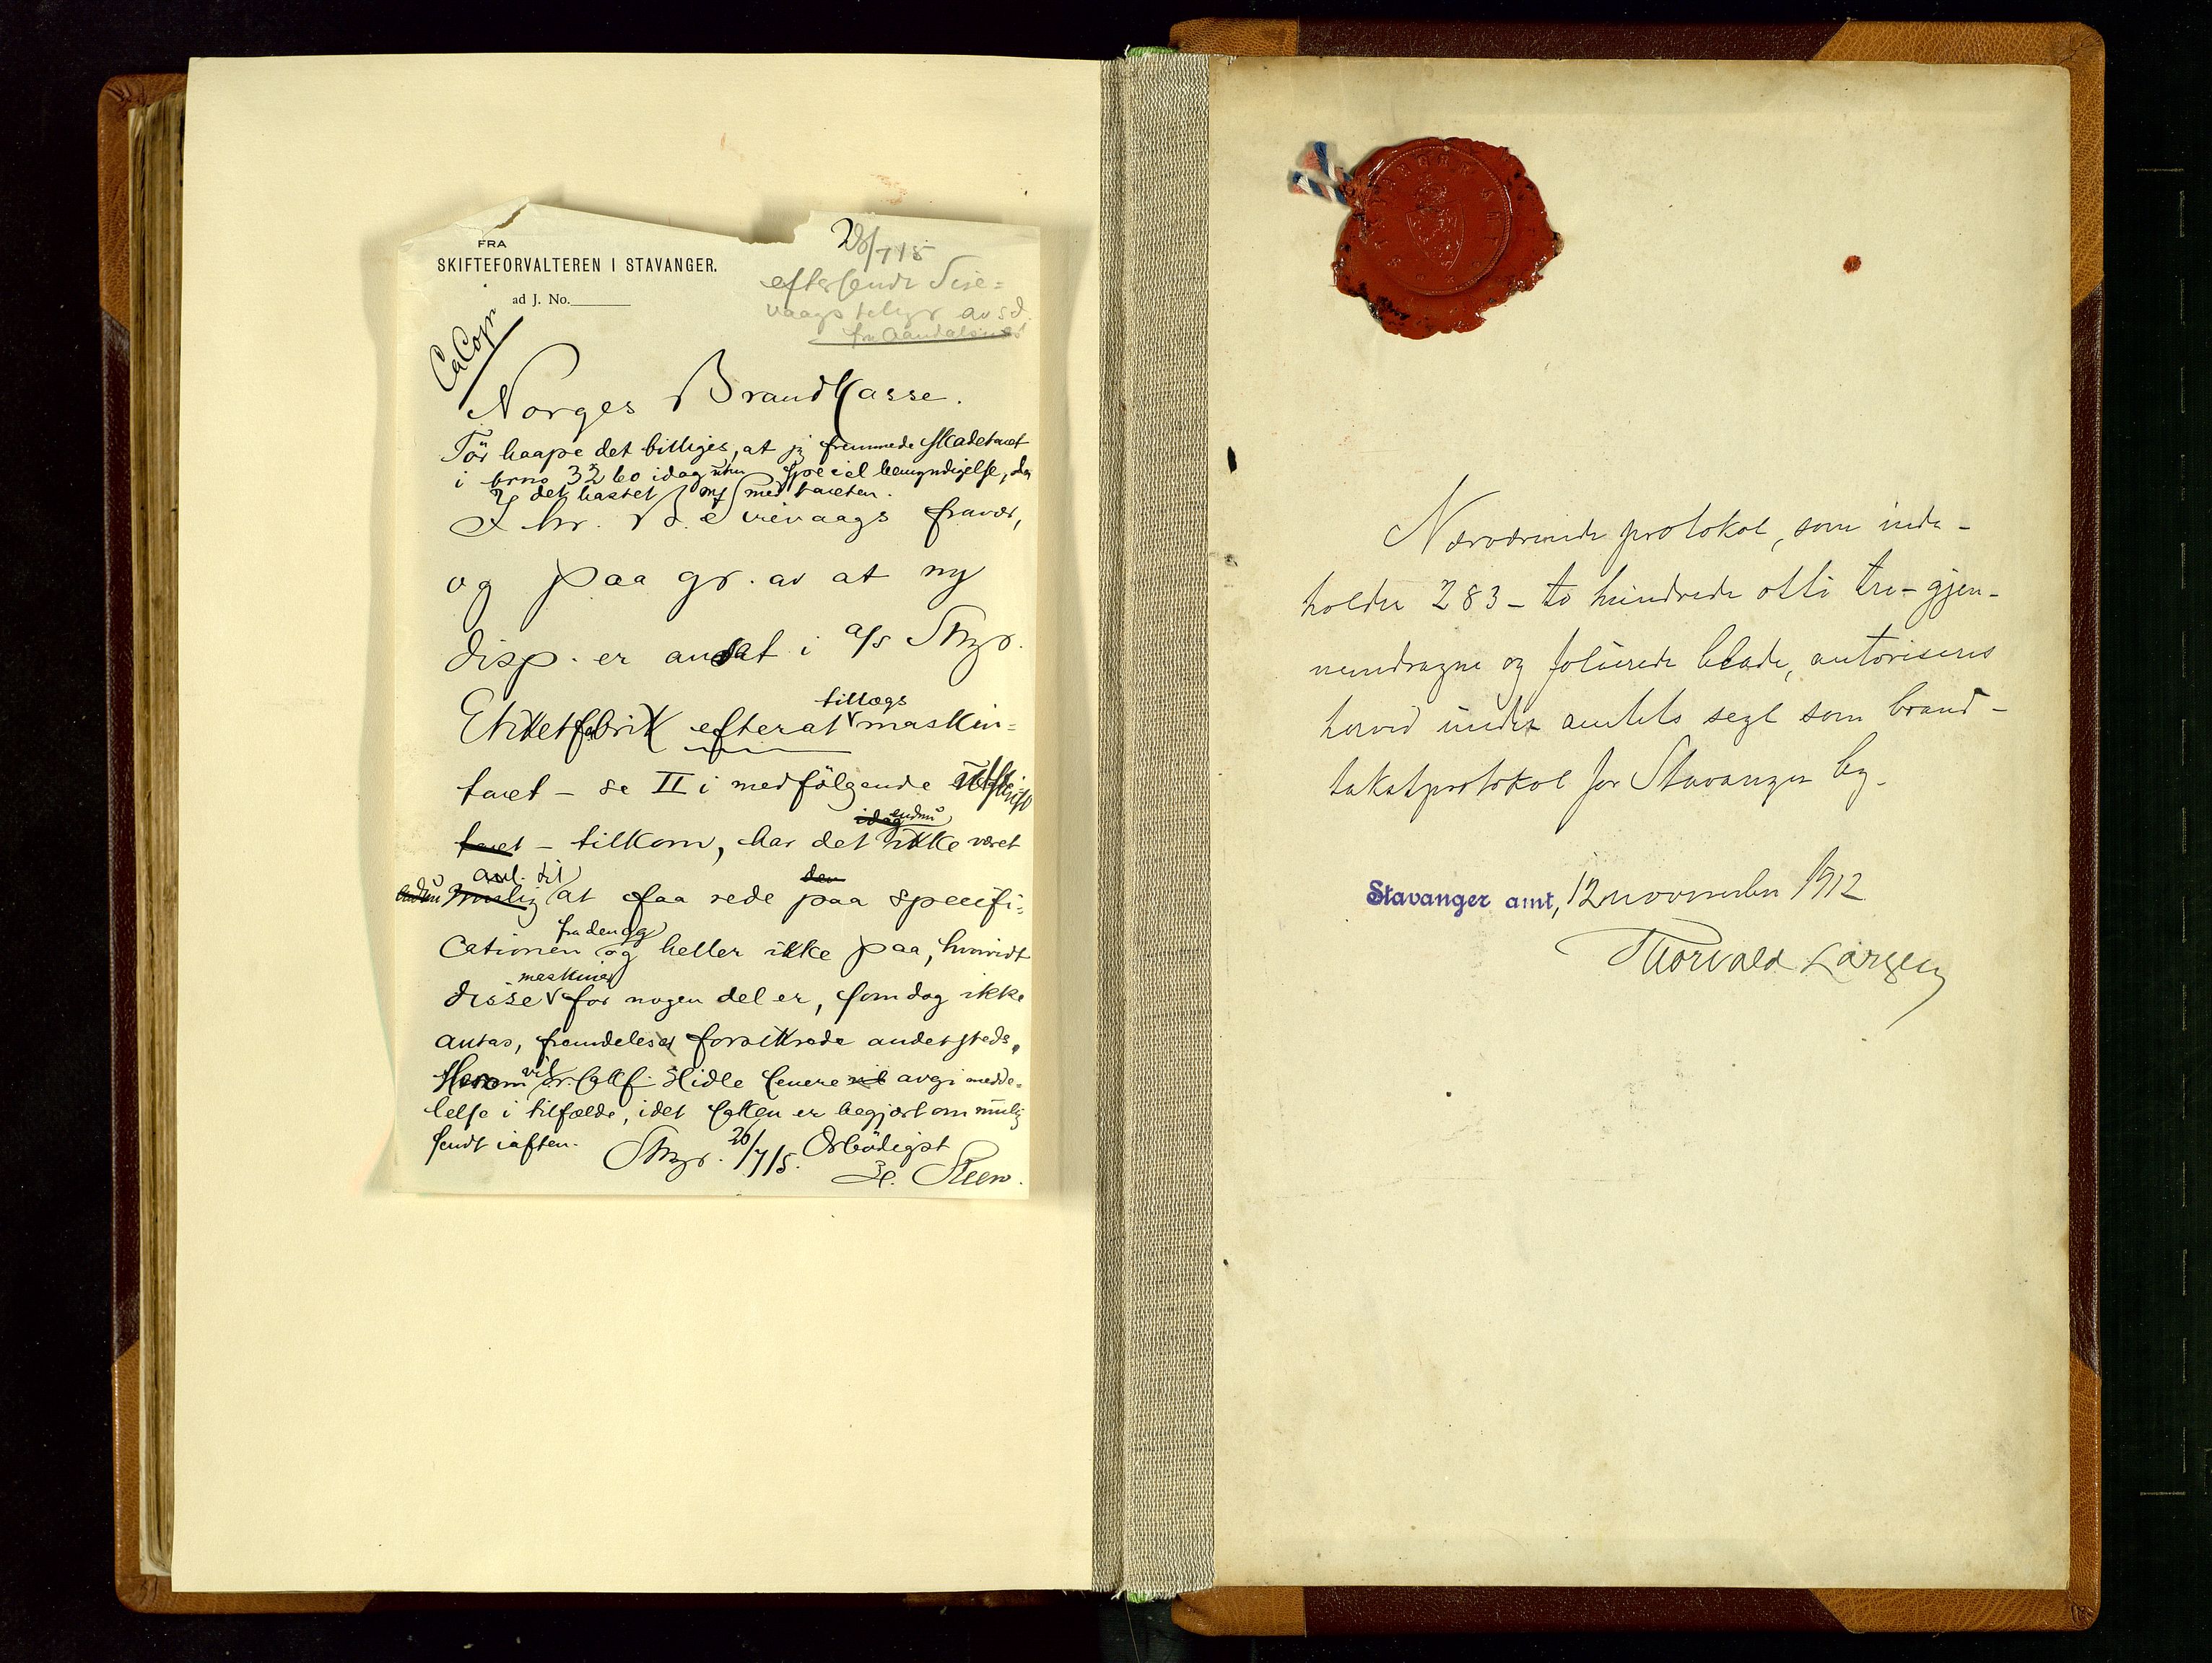 FRA
SKIFTEFORVALTEREN I STAVANGER.
ad J. No.
26/7 15
eftersendt Sire-
vaags telegr avsd.
fra Aandalsnes
Norges Brandkasse.
Tör haape det billiges, at jeg fremmede skadetaxt
i brno 3260 idag uten speciel bemyndigelse, da
det hastet med taxten.
I hr. B. Sirevaags fravær,
og paa gr. av at ny
disp. er ansat i a/s Stvgr.
Etiketfabrik efterat tillægs maskin-
taxt – se II i medfölgende utskrift
taxt – tilkom, har det idag endnu ikke været
endnu mulig anl. til at faa rede paa den specifi-
cationen og heller ikke paa, hvorvidt
disse maskiner for nogen del er, som dog ikke
antas, fremdeles forsikrede andetsteds.
Herom vil hr. Hidle senere vil avgi medde-
lelse i tilfælde, idet saken er begjært om mulig
sendt iaften.
Stvgr. 26/7 15. Ærbödigst
H. Steen.
Nærværende protokol, som inde-
holder 283 – to hundrede otti tre – gjen-
nemdragne og folierede blade, autoriseres
herved under amtets segl som brand-
takstprotokol for Stavanger by.
Stavanger amt, 12 november 1912
Thorvald Larsen